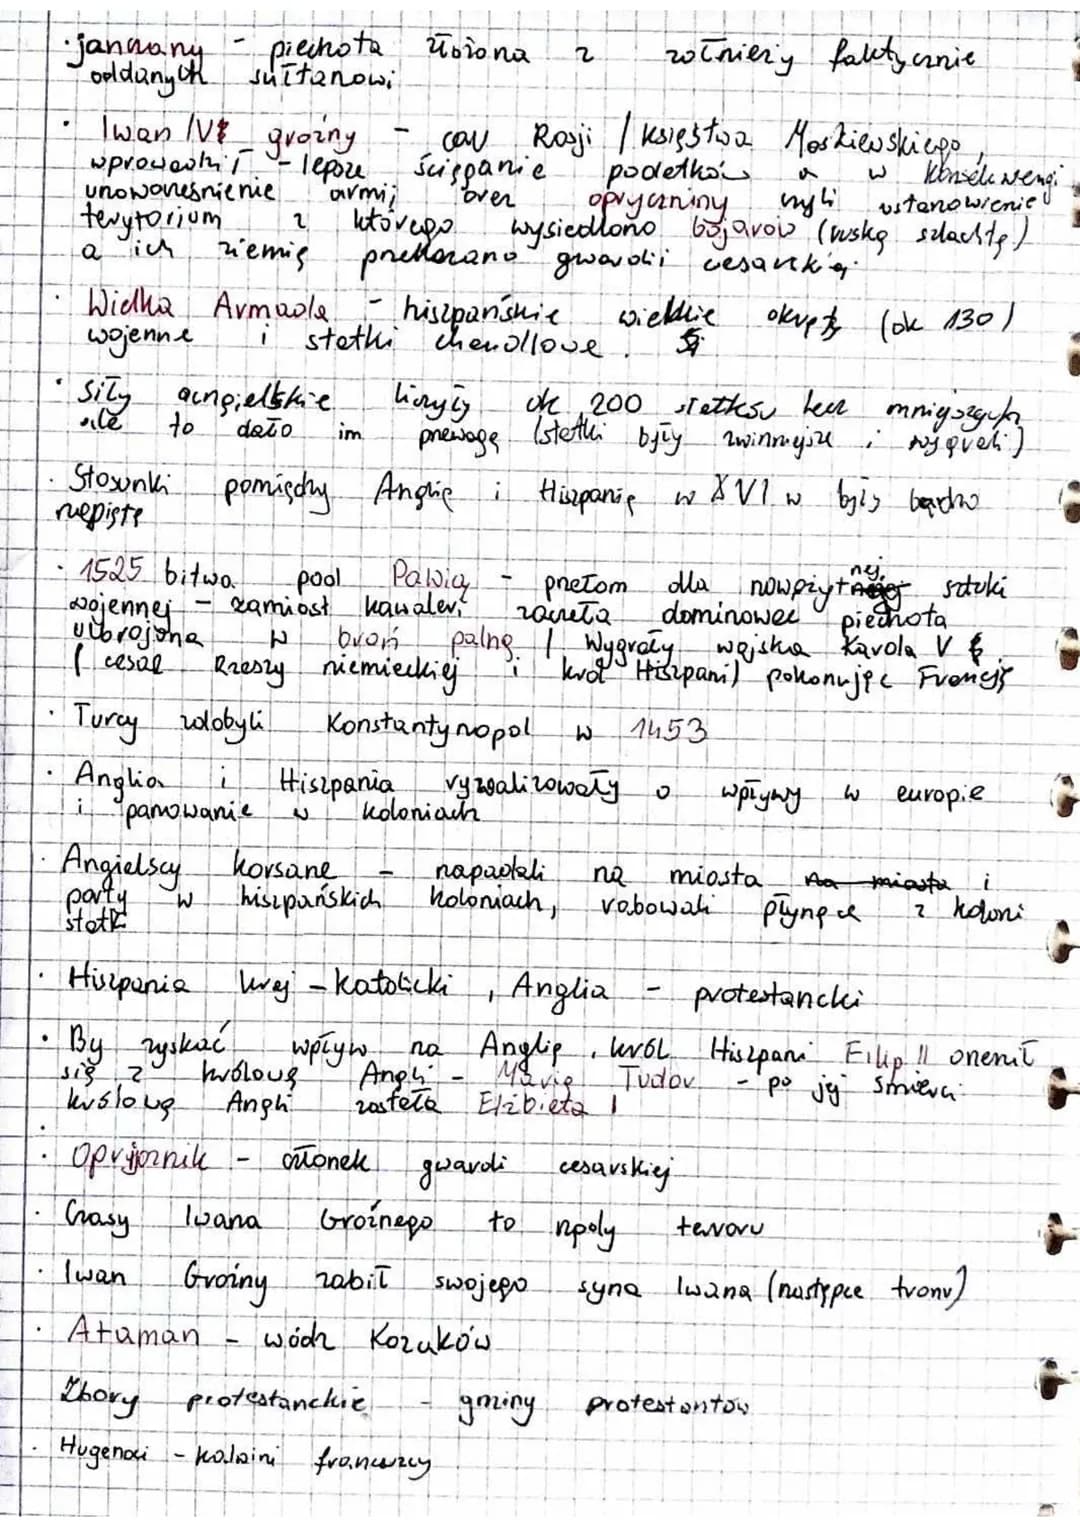 · janczarzy - piechota złożona z żołnierzy faktycznie
oddanych sułtanowi
· Iwan IV groźny - car Rosji / księstwa Moskiewskiego,
wprowadził - lepsze ściąganie podatków a w konsekwencji
unowocześnienie armii oraz opryczniny czyli ustanowienie
terytorium z którego wysiedlono bojarów (ruską szlachtę)
a ich ziemię przekazano gwardii cesarskiej.
· Wielka Armada - hiszpańskie wielkie okręty (ok 130)
wojenne i statki handlowe.
· Siły angielskie liczyły ok 200 statków lecz mniejszych
ale to dało im przewagę (statki były zwinniejsze i
· Stosunki pomiędzy Anglią i Hiszpanią w XVI w były bardzo
napięte
· 1525 bitwa pod Pawią - przełom dla nowożytnej sztuki
wojennej - zamiast kawalerii zaczęła dominować piechota
uzbrojona w broń palną / Wygrały wojska Karola V
(cesarz Rzeszy niemieckiej i król Hiszpani) pokonując Francję
· Turcy zdobyli Konstantynopol w 1453
· Anglia i Hiszpania rywalizowały o wpływy w europie
i panowanie w koloniach
· Angielscy korsarze - napadali na miasta na miasta i
porty w hiszpańskich koloniach, rabowali płynące z koloni
statki
· Hiszpania kraj - katolicki, Anglia - protestancki
· By zyskać wpływ na Anglię, król Hiszpani Filip II ożenił
się z królową Angli - Marią Tudor - po jej śmierci
królową Angli została Elżbieta I
· Opryjcznik - członek gwardi cesarskiej
· Czasy Iwana Groźnego to rządy terroru
· Iwan Groźny zabił swojego syna Iwana (następce tronu)
· Ataman - wódz Kozaków
Zbory protestanckie - gminy protestantów
· Hugenoci - kalwini francuzcy